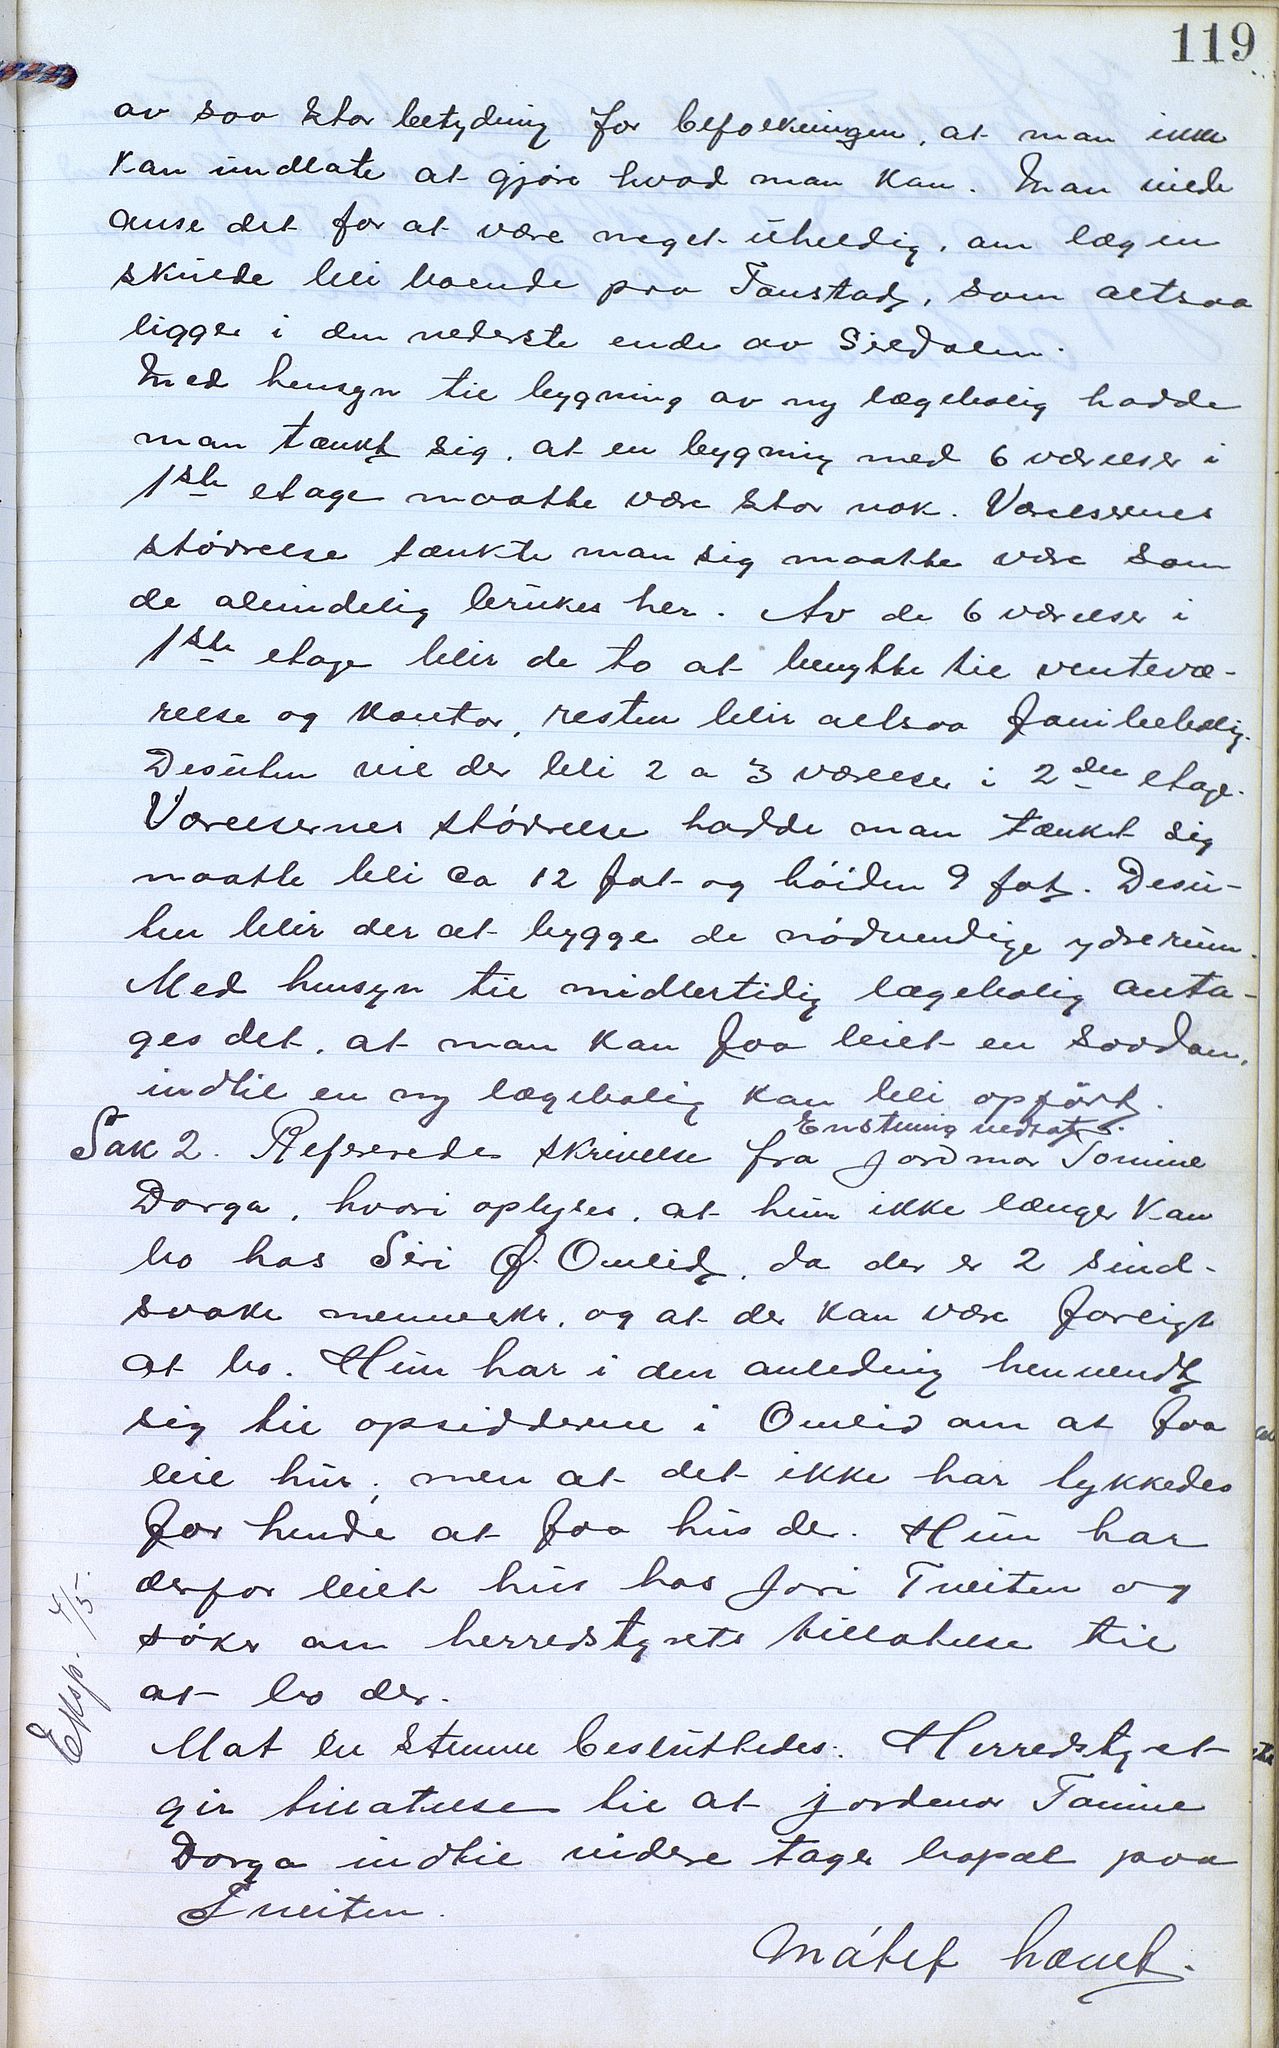 119
av saa stor betydning for befolkningen, at man ikke
kan undlate at gjøre hvad man kan. Man vilde
anse det for at være meget uheldig, om lægen
skulde bli boende paa Tonstad, som altsaa
ligger i den nederste ende av Sirdalen.
Med hensyn til bygning av ny lægebolig hadde
man tænkt sig, at en bygning med 6 værelser i
1ste etage maatte være stor nok. Værelsernes
størrelse tænkte man sig maatte være som
de almindelig brukes her. Av de 6 værelser i
1ste etage blir de to at benytte til ventevæ-
relse og kontor, resten blir altsaa familiebolig.
Desuten vil der bli 2 a 3 værelser i 2den etage.
Værelsernes størrelse hadde man tænkt sig
maatte bli ca 12 fot og høiden 9 fot. Desu-
ten blir der at bygge de nødvendige ydrerum.
Med hensyn til midlertidig lægebolig anta-
ges det, at man kan faa leiet en saadan,
indtil en ny lægebolig kan bli opført.
Enstemmig vedtat
Sak 2. Refereredes skrivelse fra jordmor Tomine
Dorga, hvori oplyses, at hun ikke længer kan
bo hos Siri O. Omlid, da der er 2 sind-
svake mennesker, og at der kan være farligt
at bo. Hun har i den anledning henvendt
sig til opsidderne i Omlid om at faa
leie hus, men at det ikke har lykkedes
for hende at faa hus der. Hun har
derfor leiet hus hos Jori Tveiten og
søker om herredstyrets tillatelse til
at bo der.
Eksp. 4/5.
Mot en stemme besluttedes: Herredstyret
gir tillatelse til at jordmor Tomine
Dorga indtil videre tager bopæl paa
Tveiten.
Møtet hævet.